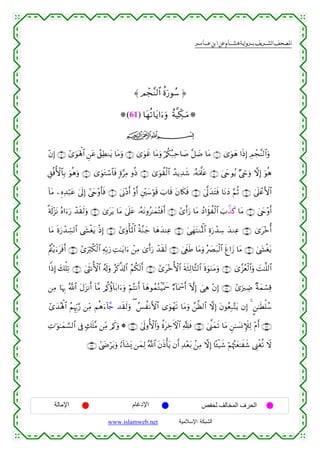 المصحف الشريف برواية هشام عن ابن عامر
﴿ سُورَةُ ٱلنَّجۡمِ ﴾
*(61) مَكِّيَّةٌ وَءَايَاتُهَا*
بِسۡمِ ٱللَّهِ ٱلرَّحۡمَٰنِ ٱلرَّحِيمِ
وَٱلنَّجۡمِ إِذَا هَوَىٰ ۝ مَا ضَلَّ صَاحِبُكُمۡ وَمَا غَوَىٰ ۝ وَمَا يَنطِقُ عَنِ ٱلۡهَوَىٰٓ ۝ إِنۡ
هُوَ إِلَّا وَحۡيٞ يُوحَىٰ ۝ عَلَّمَهُۥ شَدِيدُ ٱلۡقُوَىٰ ۝ ذُو مِرَّةٖ فَٱسۡتَوَىٰ ۝ وَهُوَ بِٱلۡأُفُقِ
ٱلۡأَعۡلَىٰ ۝ ثُمَّ دَنَا فَتَدَلَّىٰ ۝ فَكَانَ قَابَ قَوۡسَيۡنِ أَوۡ أَدۡنَىٰ ۝ فَأَوۡحَىٰٓ إِلَىٰ عَبۡدِهِۦ مَآ
أَوۡحَىٰ ۝ مَا كَذَّبَ ٱلۡفُؤَادُ مَا رَأَىٰٓ ۝ أَفَتُمَٰرُونَهُۥ عَلَىٰ مَا يَرَىٰ ۝ وَلَقَدۡ رَءَاهُ نَزۡلَةً
أُخۡرَىٰ ۝ عِندَ سِدۡرَةِ ٱلۡمُنتَهَىٰ ۝ عِندَهَا جَنَّةُ ٱلۡمَأۡوَىٰٓ ۝ إِذۡ يَغۡشَى ٱلسِّدۡرَةَ مَا
يَغۡشَىٰ ۝ مَا زَاغَ ٱلۡبَصَرُ وَمَا طَغَىٰ ۝ لَقَدۡ رَأَىٰ مِنۡ ءَايَٰتِ رَبِّهِ ٱلۡكُبۡرَىٰٓ ۝ أَفَرَءَيۡتُمُ
ٱللَّٰتَ وَٱلۡعُزَّىٰ ۝ وَمَنَوٰةَ ٱلثَّالِثَةَ ٱلۡأُخۡرَىٰٓ ۝ أَلَكُمُ ٱلذَّكَرُ وَلَهُ ٱلۡأُنثَىٰ ۝ تِلۡكَ إِذٗا
قِسۡمَةٞ ضِيزَىٰٓ ۝ إِنۡ هِيَ إِلَّآ أَسۡمَآءٞ سَمَّيۡتُمُوهَآ أَنتُمۡ وَءَابَآؤُكُم مَّآ أَنزَلَ ٱللَّهُ بِهَا مِن
سُلۡطَٰنٍۚ إِن يَتَّبِعُونَ إِلَّا ٱلظَّنَّ وَمَا تَهۡوَى ٱلۡأَنفُسُۖ وَلَقَد جَّآءَهُم مِّن رَّبِّهِمُ ٱلۡهُدَىٰٓ
۝ أَمۡ لِلۡإِنسَٰنِ مَا تَمَنَّىٰ ۝ فَلِلَّهِ ٱلۡأٓخِرَةُ وَٱلۡأُولَىٰ ۝ * وَكَم مِّن مَّلَكٖ فِي ٱلسَّمَٰوَٰتِ
لَا تُغۡنِي شَفَٰعَتُهُمۡ شَيۡـًٔا إِلَّا مِنۢ بَعۡدِ أَن يَأۡذَنَ ٱللَّهُ لِمَن يَشَآءُ وَيَرۡضَىٰٓ ۝
الحرف المخالف لحفص الإدغام الإمالة
الشبكة الإسلامية www.islamweb.net